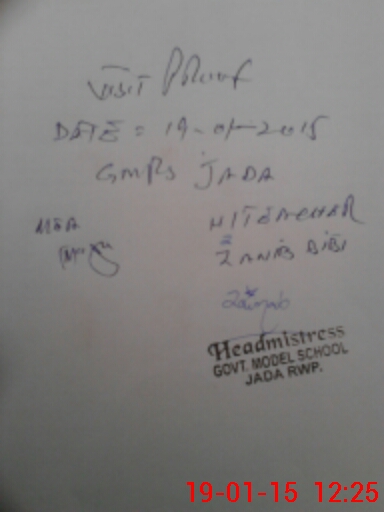 Visit Proof
DATE = 19-01-2015
GMPS JADA
MEA
H/TEACHER
ZANIB BIBI
Zainab
Headmistress
GOVT. MODEL SCHOOL
JADA RWP.
19-01-15 12:25